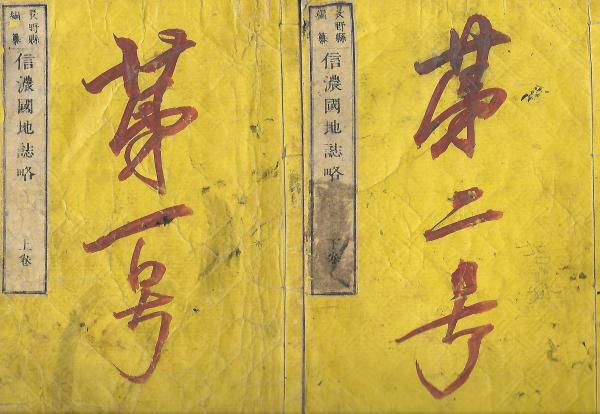 長野縣
編纂
信濃國地誌略
上卷
第一号
長野縣
編纂
信濃國地誌略
下卷
第二号